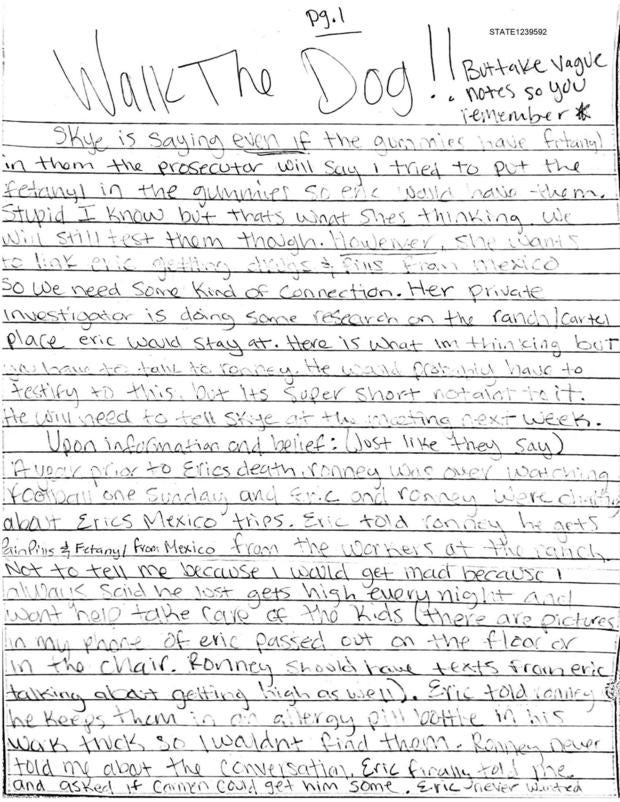 pg.1
STATE1239592
Walk The Dog!!
But take vague
notes so you
remember *
Skye is saying even if the gummies have fetanyl
in them the prosecutor will say I tried to put the
fetanyl in the gummies so eric would have them.
Stupid I know but thats what shes thinking. We
will still test them though. However, she wants
to link eric getting drugs & pills from mexico
So we need some kind of connection. Her private
investigator is doing some research on the ranch/cartel
place eric would stay at. Here is what im thinking but
you have to talk to ronney. He would probably have to
testify to this, but its super short not a lot to it.
He will need to tell Skye at the meeting next week.
Upon information and belief: (Just like they say)
A year prior to Erics death, ronney was over watching
football one Sunday and Eric and ronney were chatting
about Erics Mexico trips. Eric told ronney he gets
Pain Pills & Fetanyl from Mexico from the workers at the ranch.
Not to tell me because I would get mad because I
always said he just gets high every night and
wont help take care of the kids (there are pictures
in my phone of eric passed out on the floor or
in the chair. Ronney should have texts from eric
talking about getting high as well). Eric told ronney
he keeps them in an allergy pill bottle in his
work truck so I wouldnt find them. Ronney never
told me about the conversation. Eric finally told me
and asked if Carmen could get him some. Eric never wanted